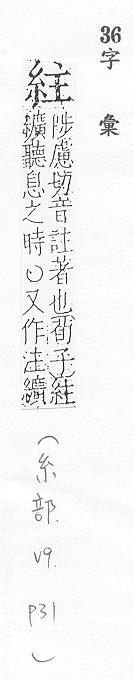 36字彙
紸
陟慮切音註著也荀子紸
纊聽息之時○又作注纊
(糸部. V9. P31)